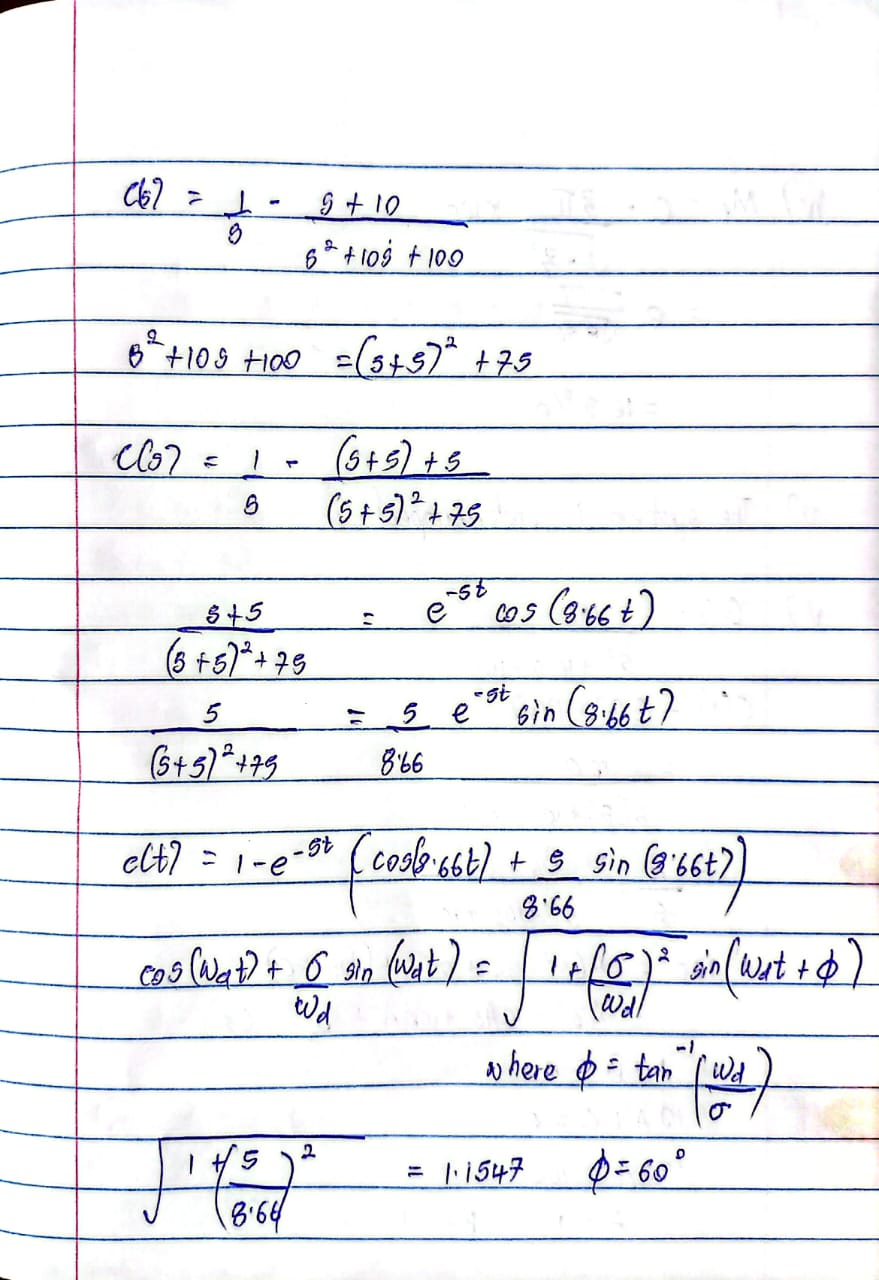 C(s) = 1/s - (s + 10)/(s² + 10s + 100)
s² + 10s + 100 = (s+5)² + 75
C(s) = 1/s - ((s+5) + 5)/((s+5)² + 75)
(s+5)/((s+5)² + 75) = e^(-5t) cos (8.66t)
5/((s+5)² + 75) = 5/8.66 e^(-5t) sin (8.66t)
c(t) = 1 - e^(-5t) (cos(8.66t) + 5/8.66 sin (8.66t))
cos(ωdt) + σ/ωd sin (ωdt) = √(1 + (σ/ωd)²) sin(ωdt + ϕ)
where ϕ = tan⁻¹(ωd/σ)
√(1 + (5/8.66)²) = 1.1547 ϕ = 60°